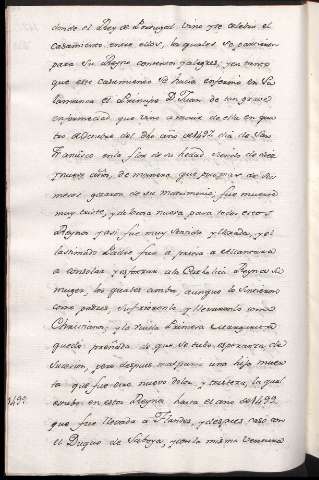 donde el Rey de Portugal vino y se celebró el
casamiento entre ellos, los quales se partieron
para su Reyno contentos y alegres; y en tanto
que este casamiento se hacia enfermó en Sa
lamanca el Principe D. Juan de un grave
enfermedad que vino a morir de ella en qua
tro de Octubre del dho año de 1497 dia de San
Francisco en la flor de su hedad siendo de diez
y nueve años, de manera, que pasar de seis
meses gozaron de su matrimonio; fue muerte
muy triste, y dolorosa nueva para todos estos
Reynos y asi fue muy sentido y llorado, y el
lastimado Padre fue a priesa a Alcantara
a consolar y esforzar a la Catholica Reyna su
muger, los quales ambos, aunque lo sintieron
como padres, sufrieronlo y llevaronlo como
Christianos; y la viuda Princesa Margarita
quedó preñada de que se tubo esperanza de
sucesion, pero despues malparió una hija muer
ta que fue otro nuevo dolor y tristeza, la qual
estubo en estos Reynos hasta el año de 1499
1499.
que fue llevada a Flandes, y despues casó con
el Duque de Saboya, y con la misma ventura